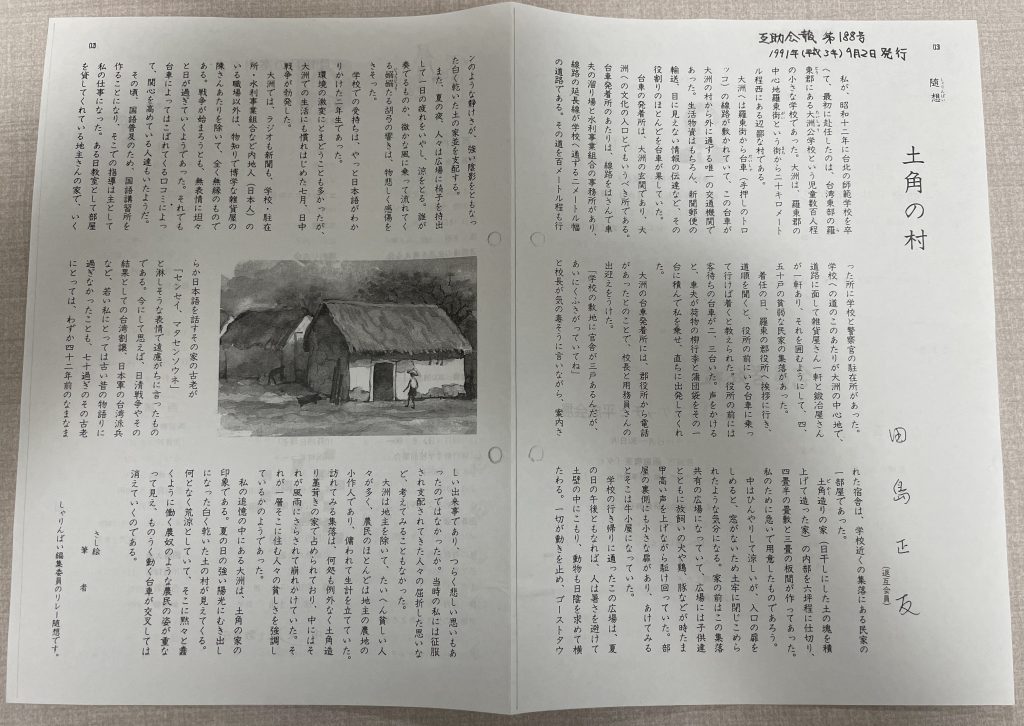 互助会報 第188号
1991年(平成3年)9月2日発行
随想
土角の村
田島正友
(退互会員)
私が、昭和十二年に台北の師範学校を卒
へて、最初に赴任したのは、台湾東部の羅
東郡にある大洲公学校という児童数百人程
の小さな学校であった。大洲は、羅東郡の
中心地羅東街という街から二十キロメート
ル程西にある辺鄙な村である。
大洲へは羅東街から台車(手押しのトロ
ッコ)の線路が敷かれていて、この台車が
大洲の村から外に通ずる唯一の交通機関で
あった。生活物資はもちろん、新聞郵便の
輸送、目に見えない情報の伝達など、その
役割りのほとんどを台車が果していた。
台車の発着所は、大洲の玄関であり、大
洲への文化の入口とでもいうべき所である。
台車発着所のあたりは、線路をはさんで車
夫の溜り場と水利事業組合の事務所があり、
線路の延長線が学校へ通ずる二メートル幅
の道路である。その道を百メートル程も行
った所に学校と警察官の駐在所があった。
学校への道のこのあたりが大洲の中心地で、
道路に面して雑貨屋さん一軒と鍛冶屋さん
が一軒あり、それを囲むようにして、四、
五十戸の貧弱な民家の集落があった。
着任の日、羅東の郡役所へ挨拶に行き、
道順を聞くと、役所の前にいる台車に乗っ
て行けば着くと教えられた。役所の前には
客待ちの台車が二、三台いた。声をかける
と、車夫が荷物の柳行李と蒲団袋をその一
台に積んで私を乗せ、直ちに出発してくれ
た。
大洲の台車発着所には、郡役所から電話
があったとのことで、校長と用務員さんの
出迎えをうけた。
「学校の敷地に官舎が三戸あるんだが、
あいにくふさがっていてね」
と校長が気の毒そうに言いながら、案内さ
れた宿舎は、学校近くの集落にある民家の
一部屋であった。
土角造りの家(日干しにした土の塊を積
上げて造った家)の内部を六坪程に仕切り、
四畳半の畳敷と三畳の板間が作ってあった。
私のために急いで用意したものであろう。
中はひんやりして涼しいが、入口の扉を
しめると、窓がないため土牢に閉じこめら
れたような気分になる。家の前はこの集落
共有の広場になっていて、広場には子供達
とともに放飼いの犬や鶏、豚などが時たま
甲高い声を上げながら駆け回っていた。部
屋の裏側にも小さな扉があり、あけてみる
とそこは牛小屋になっていた。
学校の行き帰りに通ったこの広場は、夏
の日の午後ともなれば、人は暑さを避けて
土壁の中にこもり、動物も日陰を求めて横
たわる。一切が動きを止め、ゴーストタウ
ンのような静けさが、強い陰影をともなっ
た白く乾いた土の家並を支配する。
また、夏の夜、人々は広場に椅子を持出
して一日の疲れをいやし、涼をとる。誰が
奏でるものか、微かな風に乗って流れてく
る嫋嫋たる胡弓の響きは、物悲しく感傷を
さそった。
学校での受持ちは、やっと日本語がわか
りかけた二年生であった。
環境の激変にとまどうことも多かったが、
大洲での生活にも慣れはじめた七月、日中
戦争が勃発した。
大洲では、ラジオも新聞も、学校・駐在
所・水利事業組合など内地人(日本人)の
いる職場以外は、物知りで博学な雑貨屋の
陳さんあたりを除いて、全く無縁のもので
ある。戦争が始まろうとも、無表情に坦々
と日が過ぎていくようであった。それでも
台車によってはこばれてくる口コミによっ
て、関心を高めている人達もいたようだ。
その頃、国語普及のため、国語講習所を
作ることになり、そこでの指導は主として
私の仕事になった。ある日教室として部屋
を貸してくれている地主さんの家で、いく
らか日本語を話すその家の古老が
「センセイ、マタセンソウネ」
と淋しそうな表情で遠慮がちに言ったもの
である。今にして思えば、日清戦争やその
結果としての台湾割譲、日本軍の台湾派兵
など、若い私にとっては古い昔の物語りに
過ぎなかったことも、七十過ぎのその古老
にとっては、わずか四十二年前のなまなま
しい出来事であり、つらく悲しい思いもあ
ったのではなかったか。当時の私には征服
され支配されてきた人々の屈折した思いな
ど、考えてみることもなかった。
大洲は地主を除いて、たいへん貧しい人
々が多く、農民のほとんどは地主の農地の
小作人であり、傭われて生計を立てていた。
訪れてみる集落は、何処も例外なく土角造
り藁葺きの家で占められており、中にはそ
れが風雨にさらされて崩れかけていた。そ
れが一層そこに住む人々の貧しさを強調し
ているかのようであった。
私の追憶の中にある大洲は、土角の家の
印象である。夏の日の強い陽光にむき出し
になった白く乾いた土の村が見えてくる。
何となく荒涼としていて、そこに黙々と蠢
くように働く農奴のような農民の姿が重な
って見え、ものうく動く台車が交叉しては
消えていくのである。
さし絵 筆者
しゃりんばい編集委員のリレー随想です。